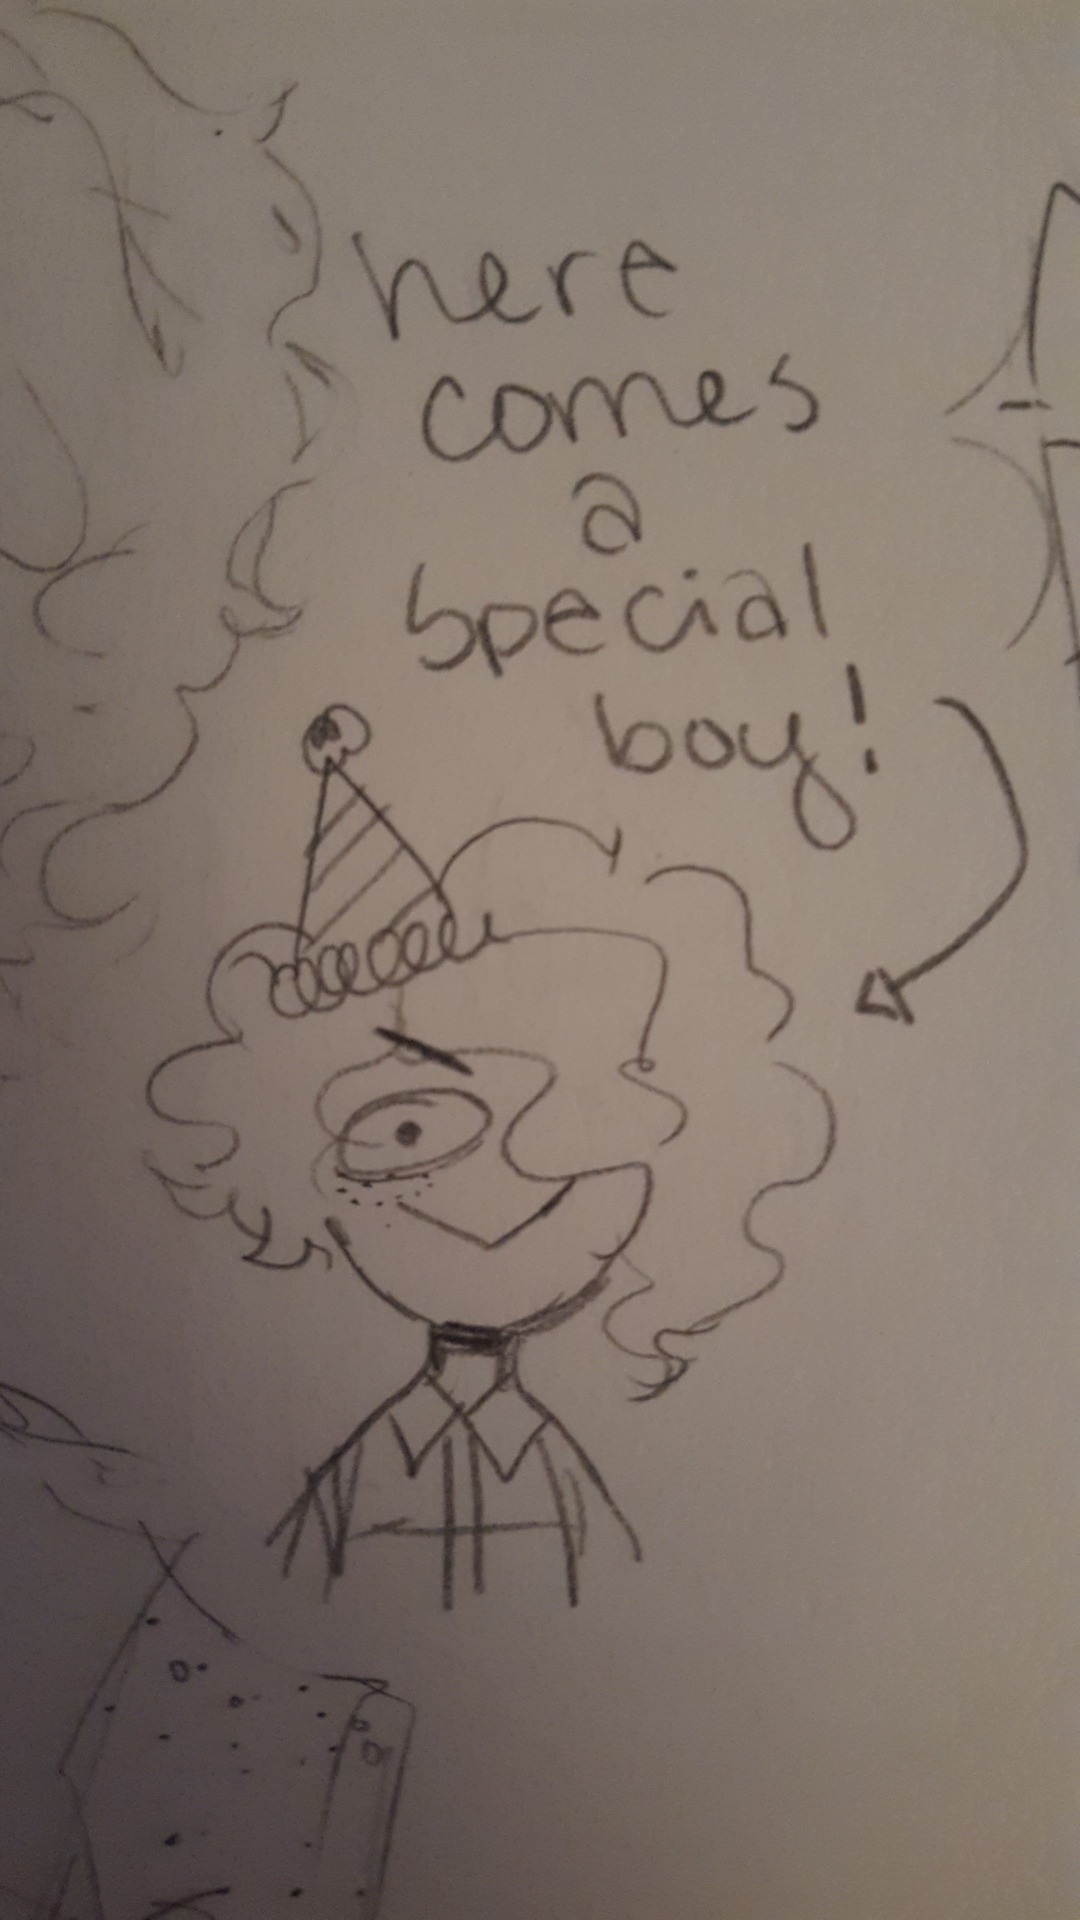 here
comes
a
special
boy!